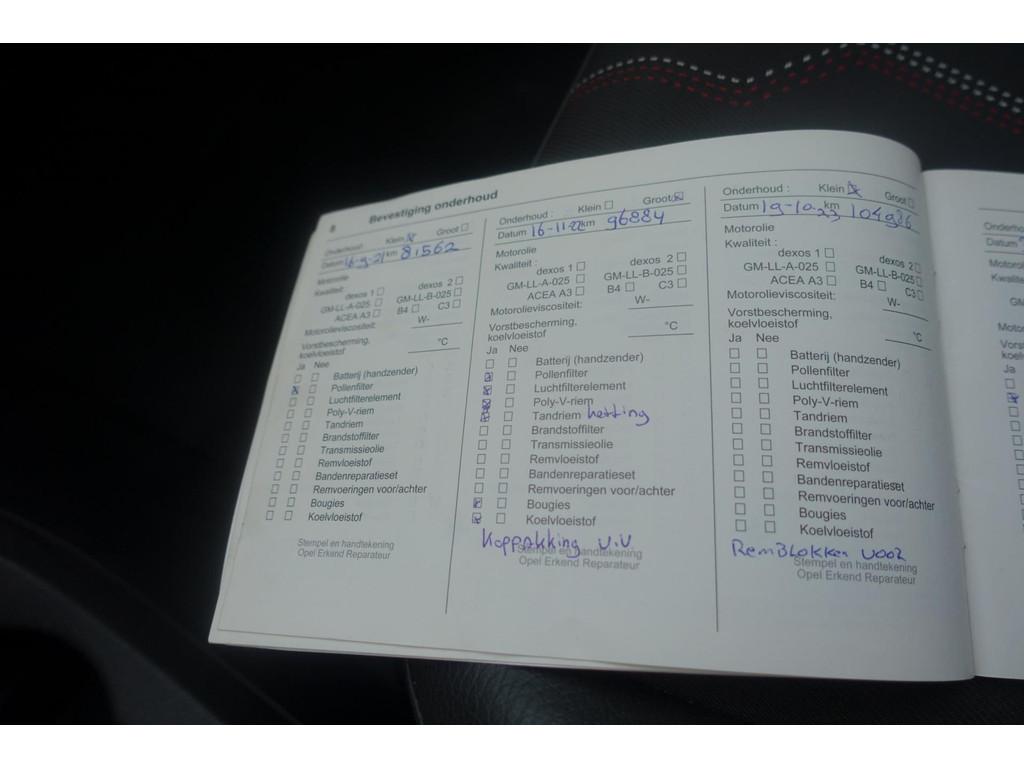 8 Bevestiging onderhoud
Onderhoud: Klein Groot
Datum 16-9-21 km 81562
Motorolie
Kwaliteit:
dexos 1 dexos 2
GM-LL-A-025 GM-LL-B-025
ACEA A3 B4 C3
Motorolieviscositeit: W-
Vorstbescherming,
koelvloeistof °C
Ja Nee
Batterij (handzender)
Pollenfilter
Luchtfilterelement
Poly-V-riem
Tandriem
Brandstoffilter
Transmissieolie
Remvloeistof
Bandenreparatieset
Remvoeringen voor/achter
Bougies
Koelvloeistof
Stempel en handtekening
Opel Erkend Reparateur
Onderhoud: Klein Groot
Datum 16-11-22 km 96884
Motorolie
Kwaliteit:
dexos 1 dexos 2
GM-LL-A-025 GM-LL-B-025
ACEA A3 B4 C3
Motorolieviscositeit: W-
Vorstbescherming,
koelvloeistof °C
Ja Nee
Batterij (handzender)
Pollenfilter
Luchtfilterelement
Poly-V-riem
Tandriem ketting
Brandstoffilter
Transmissieolie
Remvloeistof
Bandenreparatieset
Remvoeringen voor/achter
Bougies
Koelvloeistof
Koppakking v.v.
Stempel en handtekening
Opel Erkend Reparateur
Onderhoud: Klein Groot
Datum 19-10-23 km 104986
Motorolie
Kwaliteit:
dexos 1 dexos 2
GM-LL-A-025 GM-LL-B-025
ACEA A3 B4 C3
Motorolieviscositeit: W-
Vorstbescherming,
koelvloeistof °C
Ja Nee
Batterij (handzender)
Pollenfilter
Luchtfilterelement
Poly-V-riem
Tandriem
Brandstoffilter
Transmissieolie
Remvloeistof
Bandenreparatieset
Remvoeringen voor/achter
Bougies
Koelvloeistof
RemBlokken voor
Stempel en handtekening
Opel Erkend Reparateur
Ja